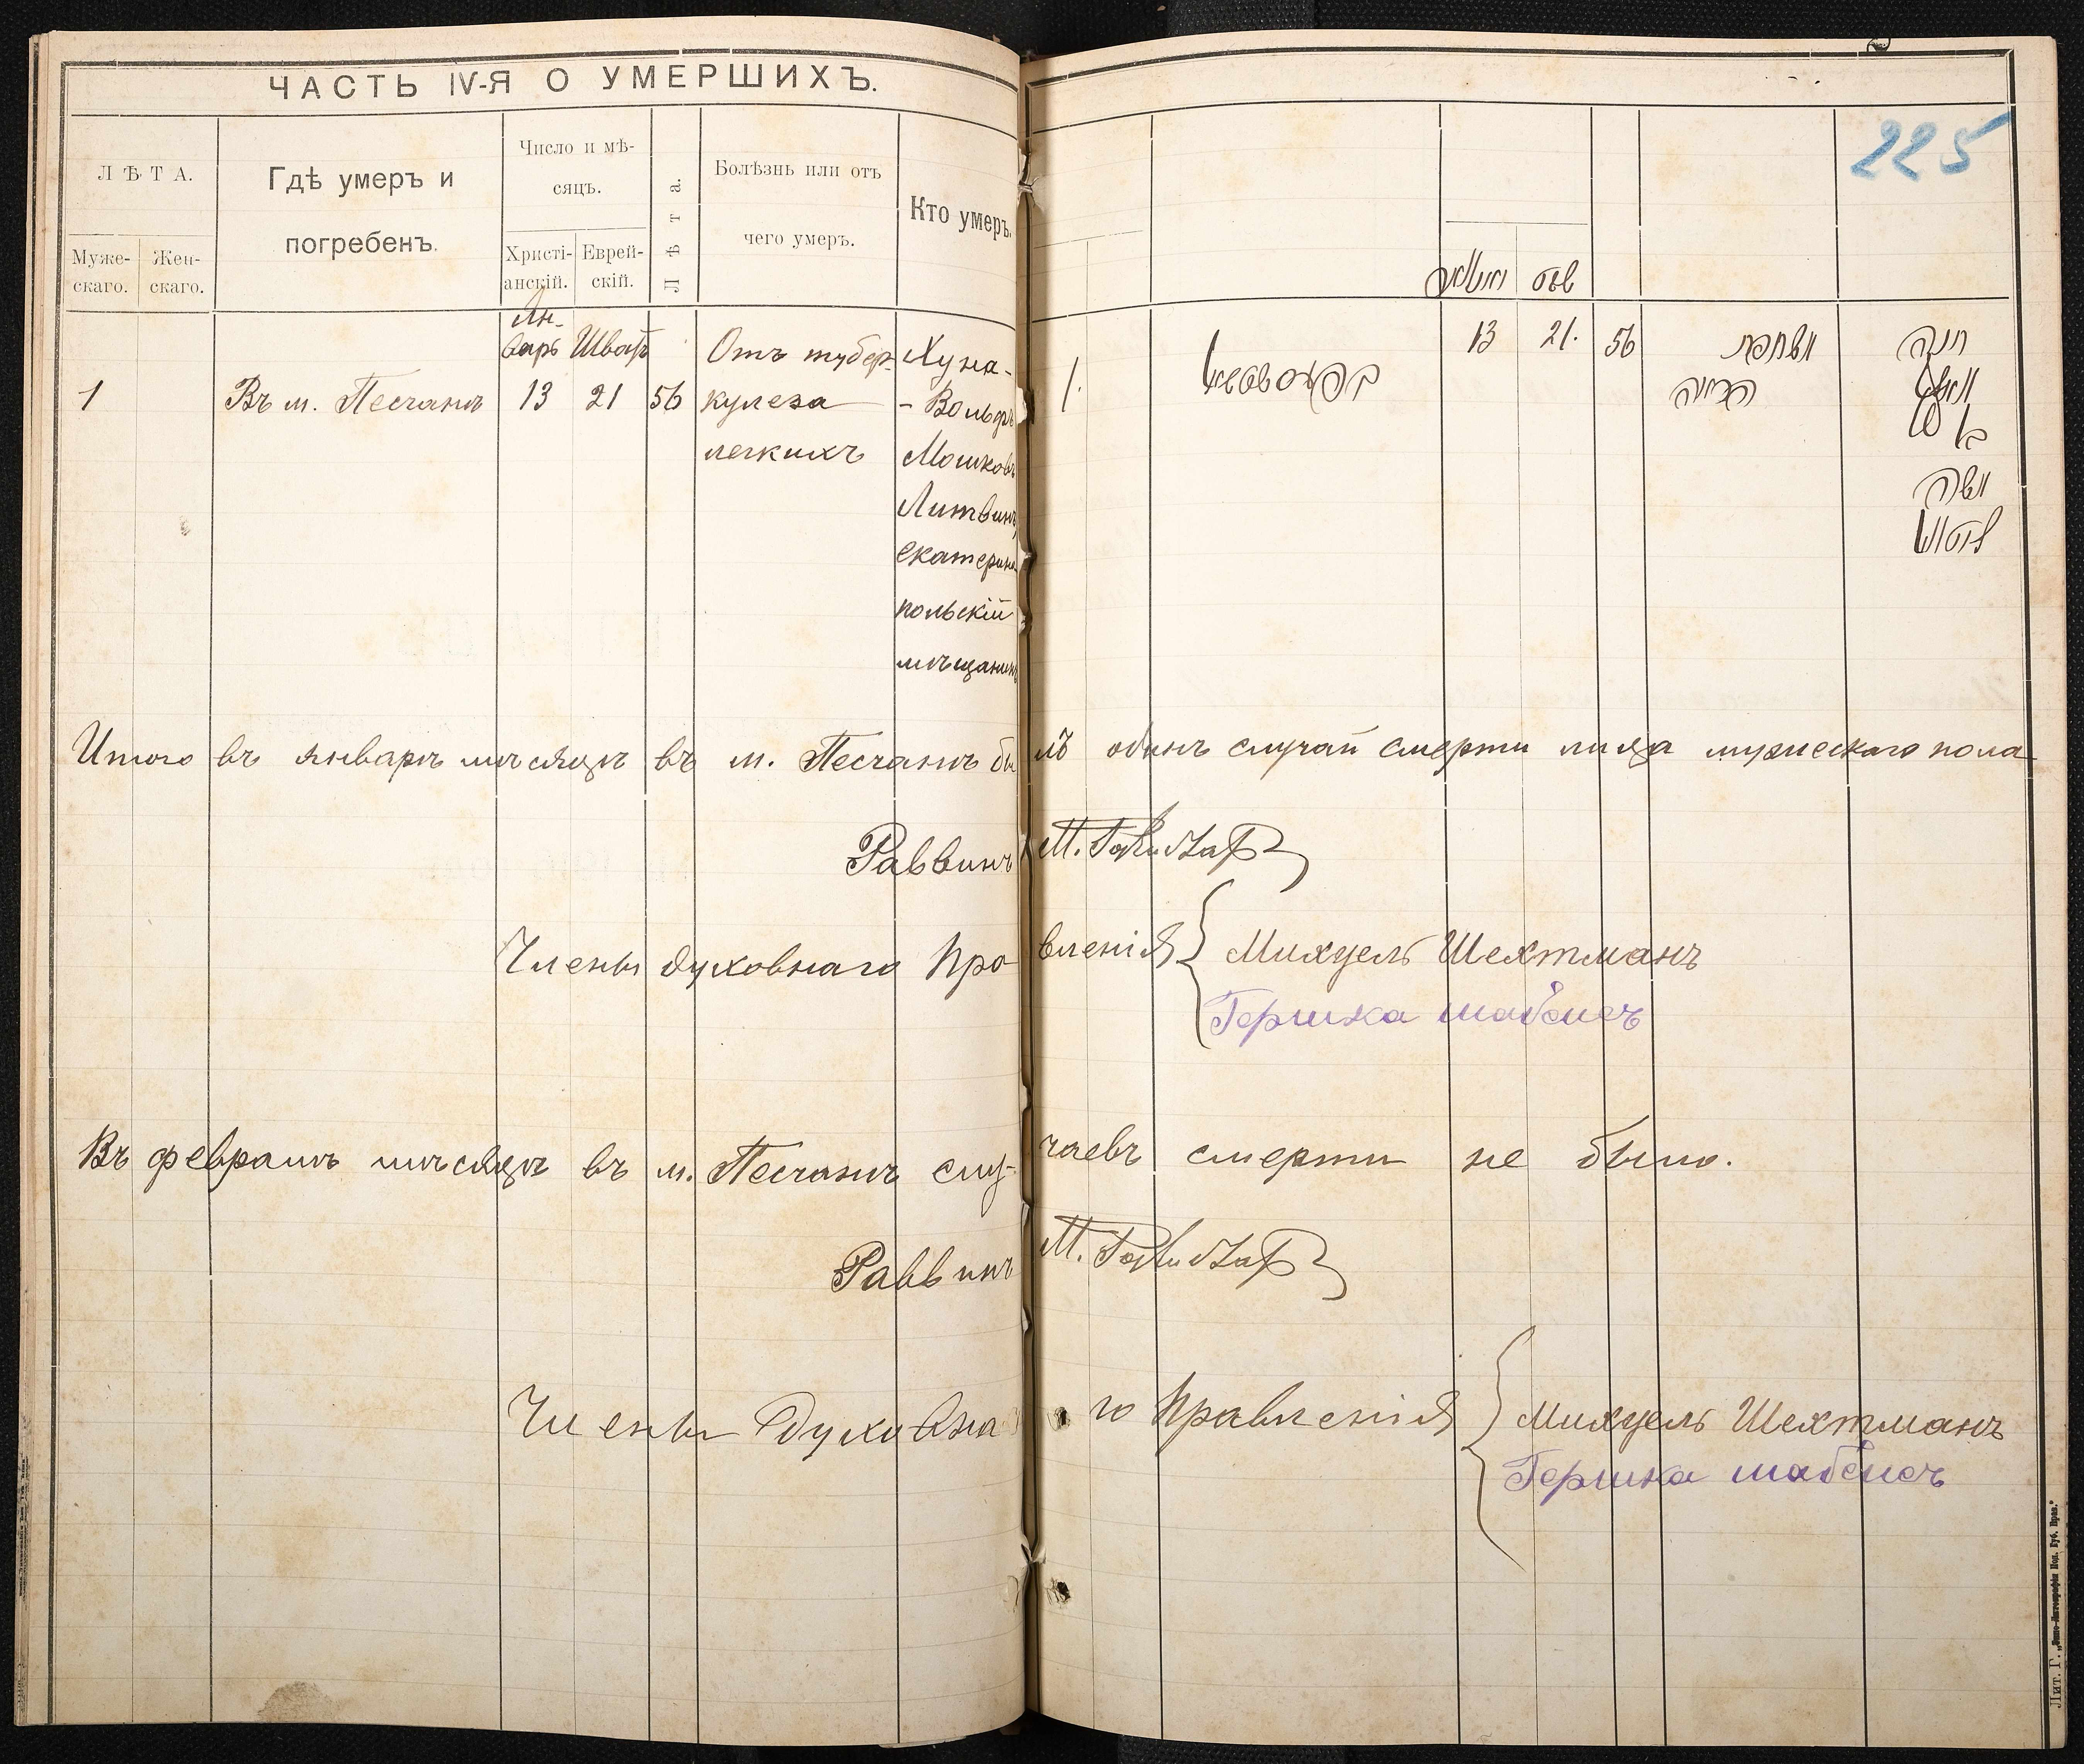 ЧАСТЬ IV-Я О УМЕРШИХЪ.
225
ЛѢТА.
Муже-
скаго.
Жен-
скаго.
Гдѣ умеръ и
погребенъ.
Число и мѣ-
сяцъ.
Христі-
анскій.
Еврей-
скій.
Лѣта.
Болѣзнь или отъ
чего умеръ.
Кто умеръ.
Ян-
варь Шватъ
1 Въ м. Песчанѣ 13 21 56
Отъ тубер-
кулеза
легкихъ
Хуна-
- Вольфъ
Мошковъ
Литвинъ,
екатерино-
польскій
мѣщанинъ
שבט
1. 13 21. 56
חונה
וואלף
משה
Итого въ январѣ мѣсяцѣ въ м. Песчанѣ былъ одинъ случай смерти лица мужескаго пола
Раввинъ М.
Члены духовнаго Правленія
Михцель Шехтманъ
Гершка
Въ февралѣ мѣсяцѣ въ м. Песчанѣ слу-чаевъ смерти не было.
Раввинъ М.
Члены Духовнаго Правленія
Михцель Шехтманъ
Гершка